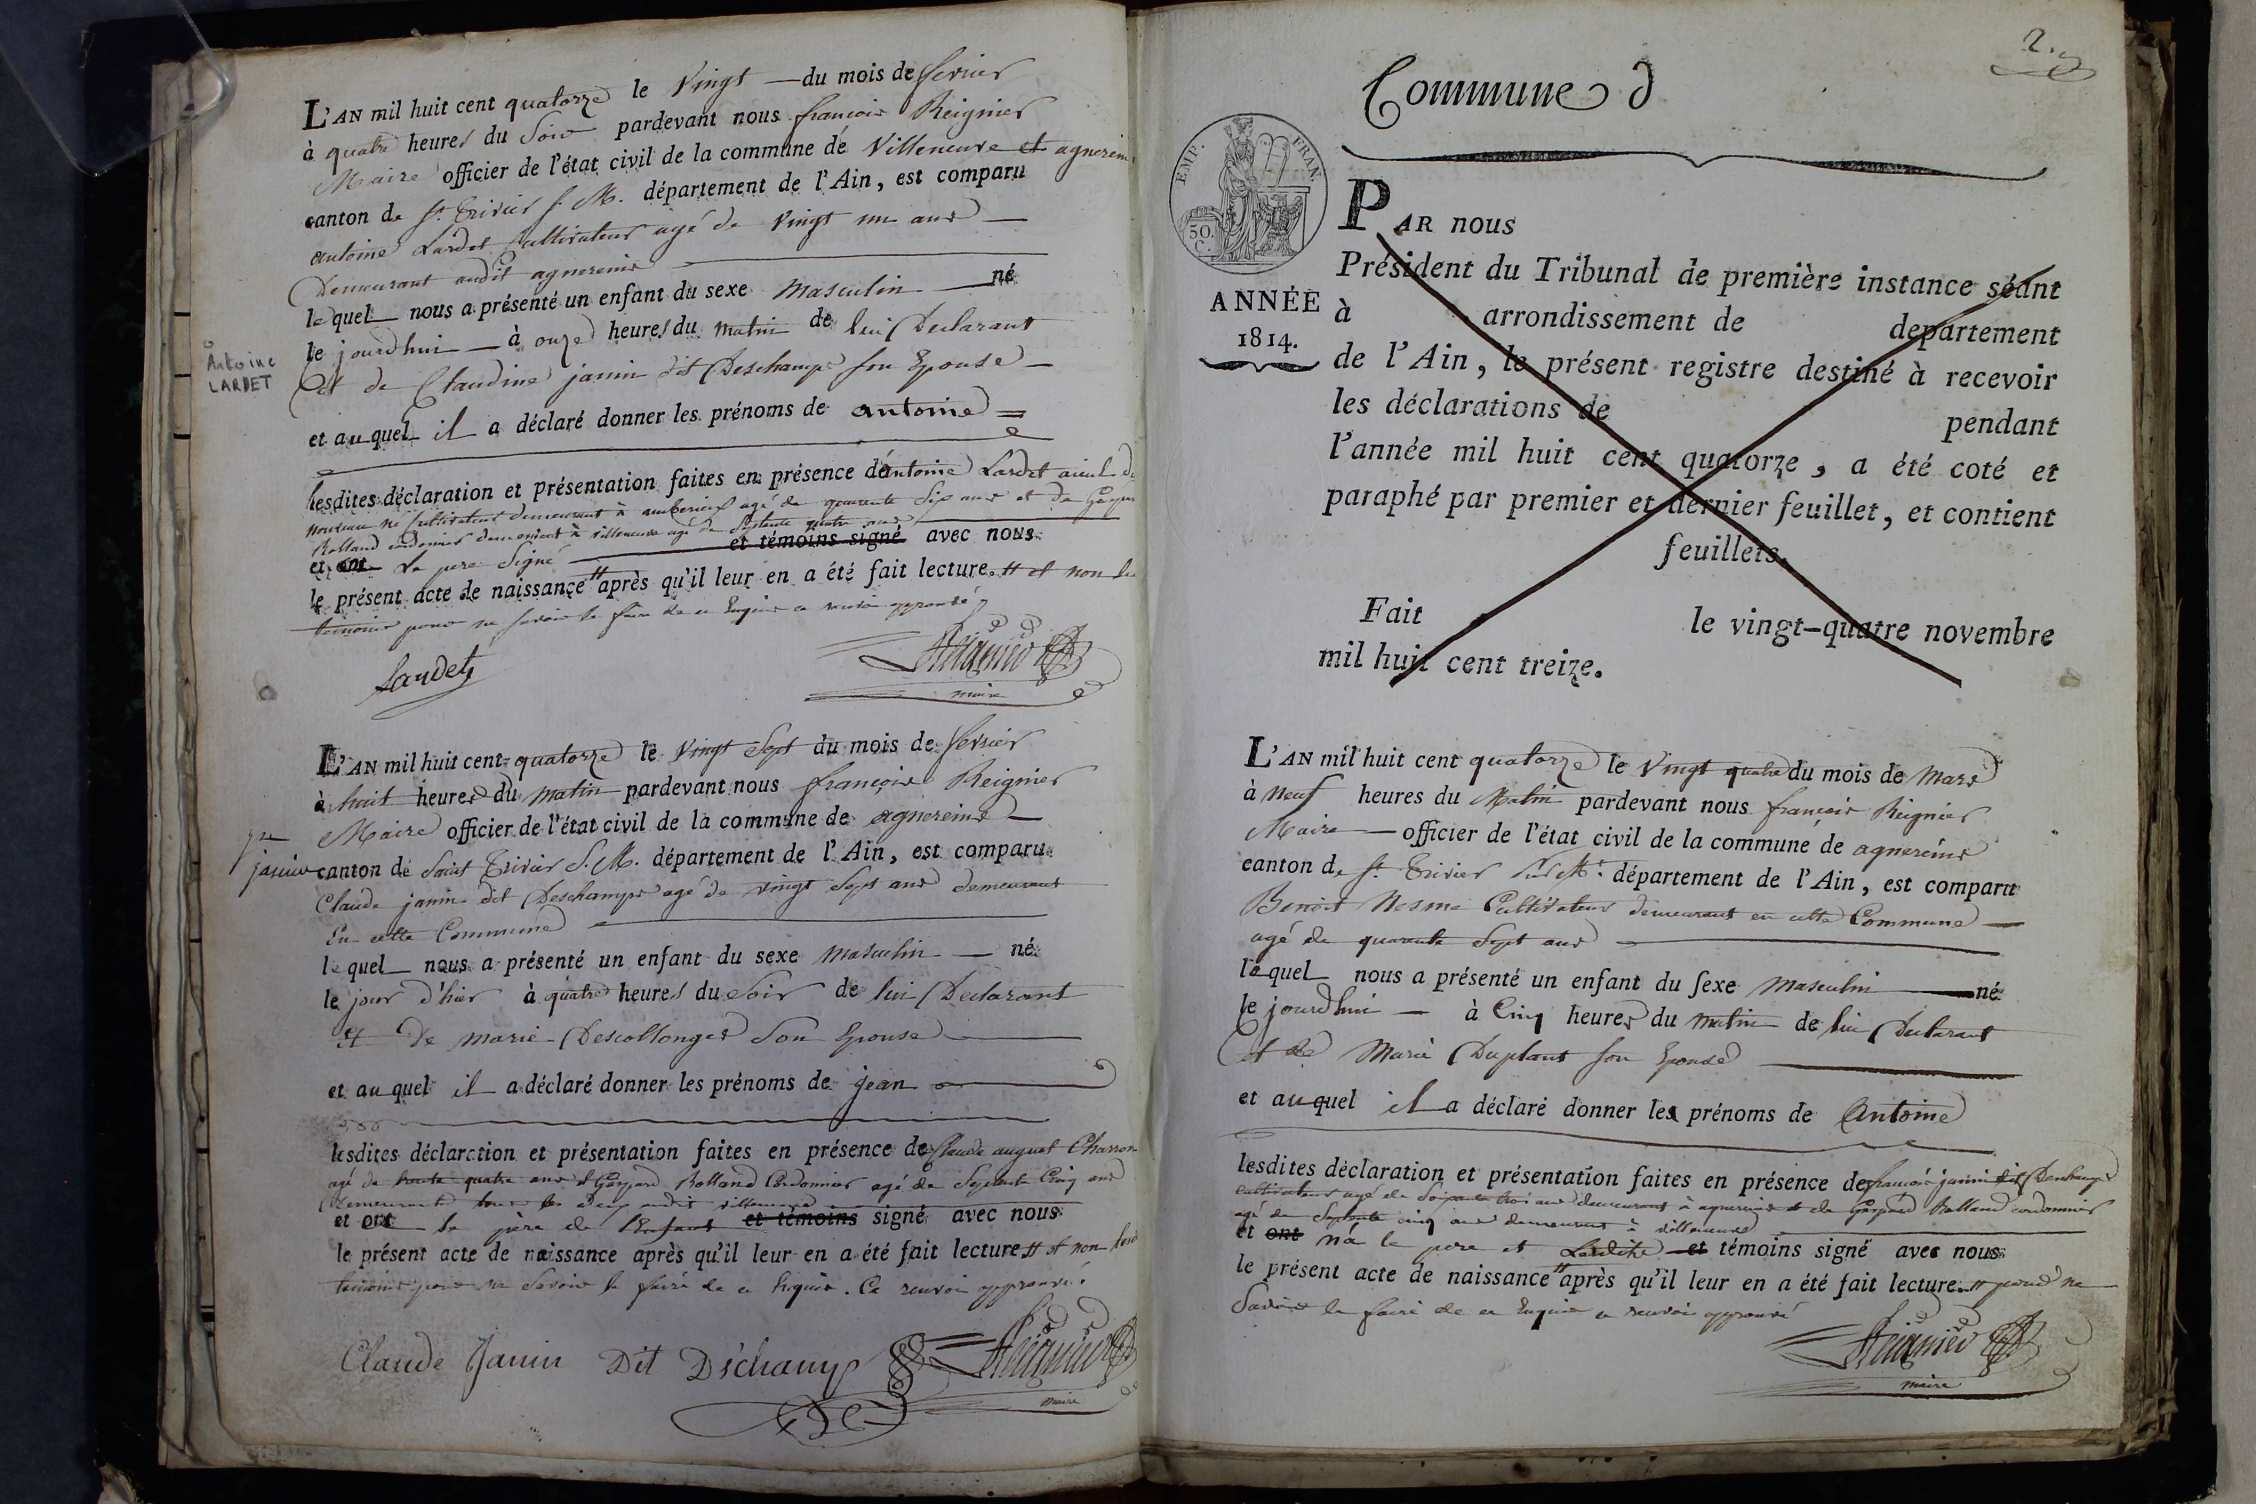 L'AN mil huit cent quatorze le Vingt du mois de fevrier
à quatre heures du Soir pardevant nous françois Reignier
Maire officier de l'état civil de la commune de Villeneuve et agnereins
canton de St. Trivier s. M. département de l'Ain, est comparu
antoine Lardet Cultivateur agé de vingt un ans
Demeurant audit agnereins
lequel nous a présenté un enfant du sexe Masculin né
le jourdhui à onze heures du matin de lui Declarant
et de Claudine janin dit Deschamps son Epouse
et auquel il a déclaré donner les prénoms de antoine
lesdites déclaration et présentation faites en présence de antoine Lardet aieul du
nouveau né Cultivateur demeurant à amberieux agé de quarante Six ans et de Gaspard
Rolland cordonnier demeurant à villeneuve agé de Septante quatre ans
et ont Le pere Signé et témoins signé avec nous
le présent acte de naissance après qu'il leur en a été fait lecture. # et non les
temoins pour ne savoir le faire de ce Enquis ce renvoi approuvé
Antoine
LARDET
Lardet
Reignier
maire
L'AN mil huit cent quatorze le Vingt Sept du mois de fevrier
à huit heures du matin pardevant nous françois Reignier
Maire officier de l'état civil de la commune de agnereins
canton de Saint Trivier S. M. département de l'Ain, est comparu
janin
Claude janin dit Deschamps agé de vingt Sept ans demeurant
En cette Commune
lequel nous a présenté un enfant du sexe Masculin né
le jour d'hier à quatre heures du Soir de lui Declarant
et De marie Descollonges Son Epouse
et auquel il a déclaré donner les prénoms de jean
lesdites déclaration et présentation faites en présence de Claude auguat Charron
agé de trente quatre ans & Gaspard Rolland Cordonnier agé de Septante Cinq ans
Demeurant tous les Deux audit villeneuve
et ont le père de l'Enfant et témoins signé avec nous
le présent acte de naissance après qu'il leur en a été fait lecture # et non lesd
temoins pour ne Savoir le faire de ce Enquis. Ce renvoi approuvé.
Claude Janin Dit Déchamp
Reignier
maire
2.
Commune d
EMP. FRAN.
50.
C.
ANNÉE
1814.
PAR nous
Président du Tribunal de première instance séant
à arrondissement de departement
de l'Ain, le présent registre destiné à recevoir
les déclarations de pendant
l'année mil huit cent quatorze, a été coté et
paraphé par premier et dernier feuillet, et contient
feuillets.
Fait le vingt-quatre novembre
mil huit cent treize.
L'AN mil huit cent quatorze le Vingt quatre du mois de Mars
à Neuf heures du Matin pardevant nous françois Reignier
Maire officier de l'état civil de la commune de agnereins
canton de St. Trivier sur M. département de l'Ain, est comparu
Benoit Nesme Cultivateur demeurant en cette Commune
agé de quarante Sept ans
lequel nous a présenté un enfant du sexe Masculin né
le jourdhui à Cinq heures du matin de lui Declarant
et de Marie Duplant son Epouse
et auquel il a déclaré donner les prénoms de Antoine
lesdites déclaration et présentation faites en présence de francois janin dit Deschamps
cultivateur agé de Soixante trois ans demeurant à agnereins et de Gaspard Rolland cordonnier
agé de Septante cinq ans demeurant à villeneuve
et ont na le pere et Lesdits et témoins signé avec nous
le présent acte de naissance # après qu'il leur en a été fait lecture. # pour ne
Savoir le faire de ce Enquis ce renvoi approuvé
Reignier
maire